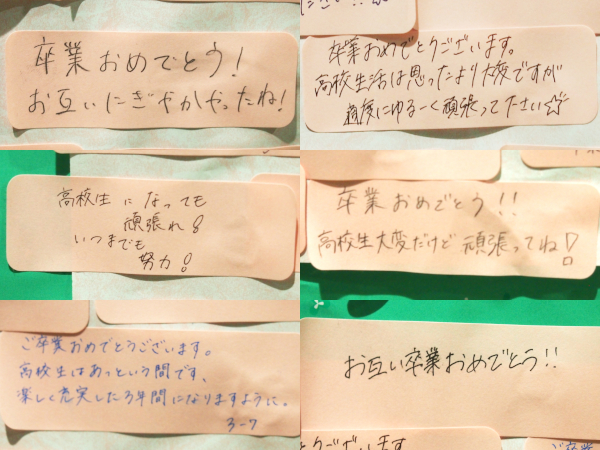 卒業おめでとう!
お互いにぎやかやったね!
卒業おめでとうございます。
高校生活は思ったより大変ですが
適度にゆるーく頑張って下さい☆
高校生になっても
頑張れ!
いつまでも
努力!
卒業おめでとう!!
高校生大変だけど頑張ってね!
ご卒業おめでとうございます。
高校生はあっという間です、
楽しく充実した3年間になりますように。
3-7
お互い卒業おめでとう!!
とうございます
ご卒業